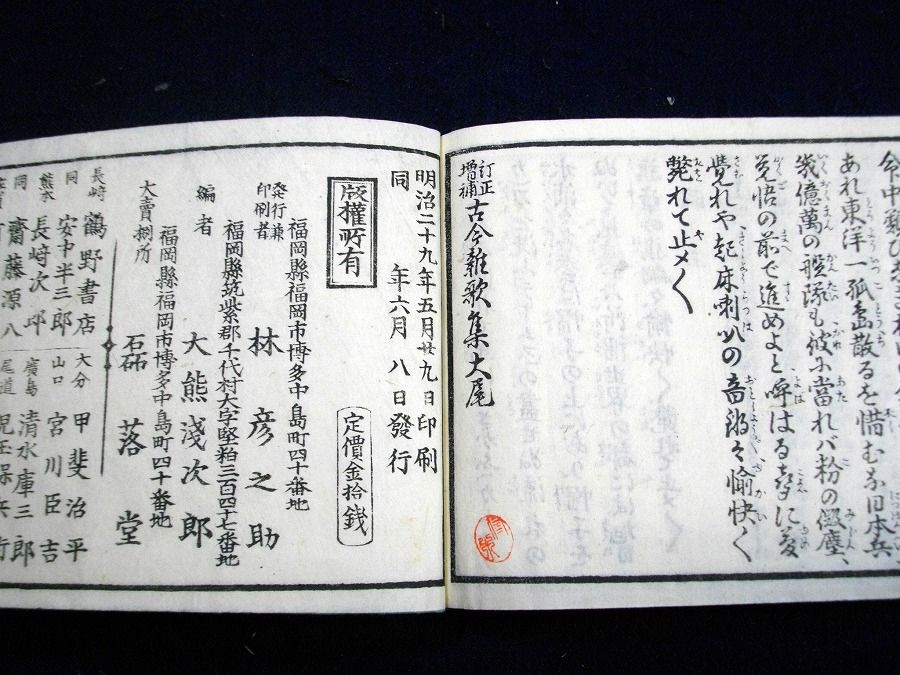 あれ東洋一孤島散るを惜むな日本兵
幾億萬の艦隊も彼に當れバ粉の微塵、
覚悟の前で進めよと呼はる聲に夢
覺れや起床喇叭の音渉々愉快〱
斃れて止メ〱
訂正増補 古今雜歌集大尾
明治二十九年五月廿九日印刷
同 年六月 八日發行
版權所有
定價金拾錢
福岡縣福岡市博多中島町四十番地
發行兼印刷者 林 彦之助
福岡縣筑紫郡千代村大字堅粕三百四十七番地
編者 大熊淺次郎
福岡縣福岡市博多中島町四十番地
大賣捌所 石硴 落堂
長崎 鶴野書店
大分 甲斐治平
同 安中半三郎
山口 宮川臣吉
熊本 長崎次郎
廣島 清水庫三郎
同 齋藤源八
尾道 児玉保兵衛